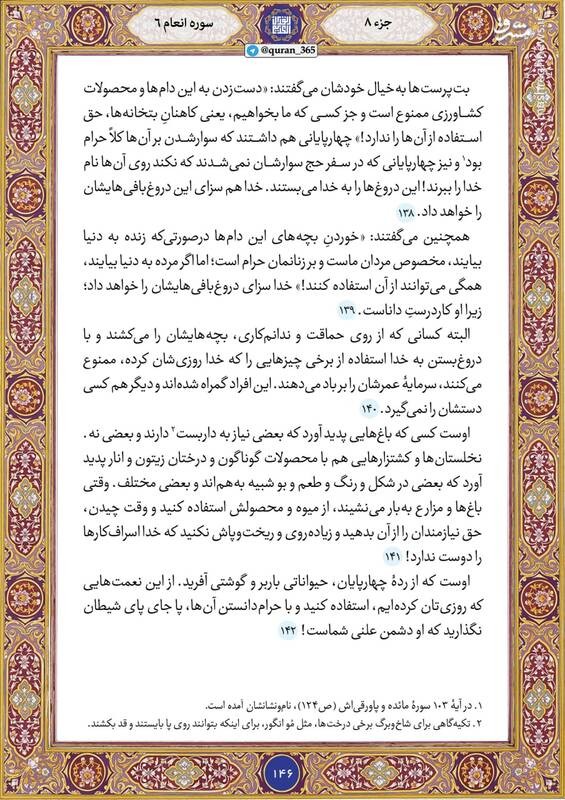 جزء ۸
سوره انعام ۶
@quran_365
بت‌پرست‌ها به خیال خودشان می‌گفتند: «دست‌زدن به این دام‌ها و محصولات
کشاورزی ممنوع است و جز کسی که ما بخواهیم، یعنی کاهنانِ بتخانه‌ها، حق
استفاده از آن‌ها را ندارد!» چهارپایانی هم داشتند که سوارشدن بر آن‌ها کلاً حرام
بود۱ و نیز چهارپایانی که در سفر حج سوارشان نمی‌شدند که نکند روی آن‌ها نام
خدا را ببرند! این دروغ‌ها را به خدا می‌بستند. خدا هم سزای این دروغ‌بافی‌هایشان
را خواهد داد. ۱۳۸
همچنین می‌گفتند: «خوردنِ بچه‌های این دام‌ها درصورتی‌که زنده به دنیا
بیایند، مخصوص مردان ماست و بر زنانمان حرام است؛ اما اگر مرده به دنیا بیایند،
همگی می‌توانند از آن استفاده کنند!» خدا سزای دروغ‌بافی‌هایشان را خواهد داد؛
زیرا او کاردرستِ داناست. ۱۳۹
البته کسانی که از روی حماقت و ندانم‌کاری، بچه‌هایشان را می‌کشند و با
دروغ‌بستن به خدا استفاده از برخی چیزهایی را که خدا روزی‌شان کرده، ممنوع
می‌کنند، سرمایهٔ عمرشان را بر باد می‌دهند. این افراد گمراه شده‌اند و دیگر هم کسی
دستشان را نمی‌گیرد. ۱۴۰
اوست کسی که باغ‌هایی پدید آورد که بعضی نیاز به داربست۲ دارند و بعضی نه.
نخلستان‌ها و کشتزارهایی هم با محصولات گوناگون و درختان زیتون و انار پدید
آورد که بعضی در شکل و رنگ و طعم و بو شبیه به‌هم‌اند و بعضی مختلف. وقتی
باغ‌ها و مزارع به‌بار می‌نشیند، از میوه و محصولش استفاده کنید و وقت چیدن،
حق نیازمندان را از آن بدهید و زیاده‌روی و ریخت‌وپاش نکنید که خدا اسراف‌کارها
را دوست ندارد! ۱۴۱
اوست که از ردهٔ چهارپایان، حیواناتی باربر و گوشتی آفرید. از این نعمت‌هایی
که روزی‌تان کرده‌ایم، استفاده کنید و با حرام‌دانستن آن‌ها، پا جای پای شیطان
نگذارید که او دشمن علنی شماست! ۱۴۲
۱. در آیهٔ ۱۰۳ سورهٔ مائده و پاورقی‌اش (ص۱۲۴)، نام‌ونشانشان آمده است.
۲. تکیه‌گاهی برای شاخ‌وبرگ برخی درخت‌ها، مثل مُو انگور، برای اینکه بتوانند روی پا بایستند و قد بکشند.
۱۴۶